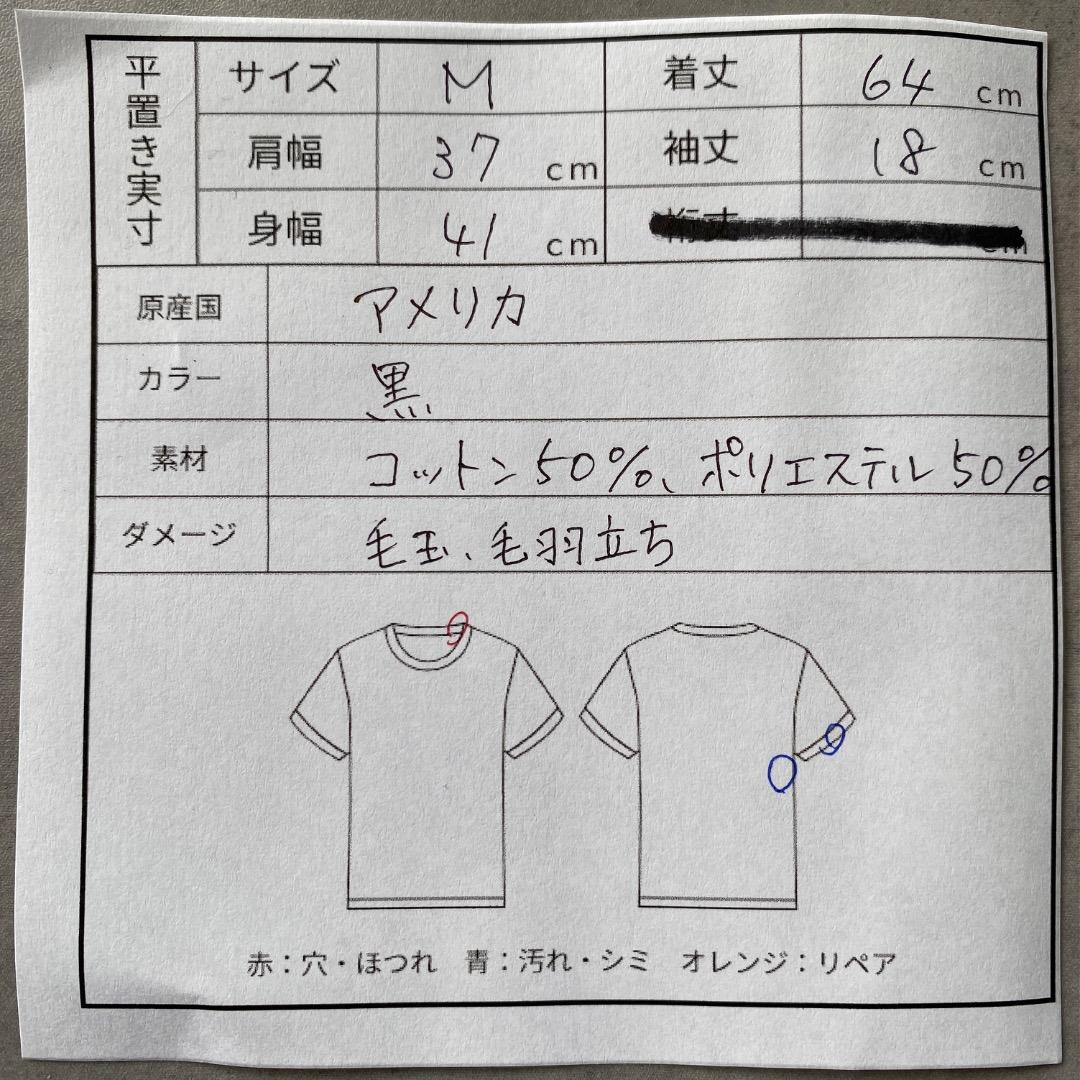 平置き実寸
サイズ M 着丈 64 cm
肩幅 37 cm 袖丈 18 cm
身幅 41 cm
原産国 アメリカ
カラー 黒
素材 コットン50%、ポリエステル50%
ダメージ 毛玉、毛羽立ち
赤：穴・ほつれ 青：汚れ・シミ オレンジ：リペア